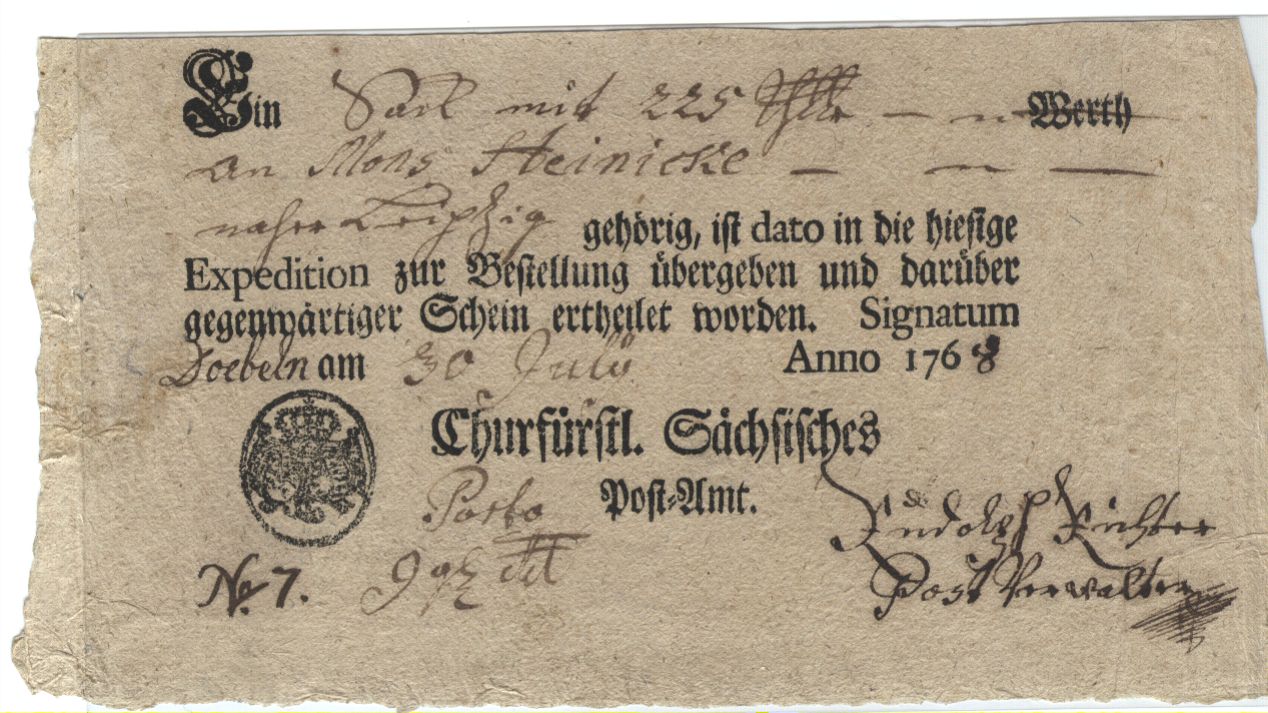 Ein Sack mit 225 Thlr — — Werth
an Mons Heinicke — — —
naher Leipzig gehörig, ist dato in die hiesige
Expedition zur Bestellung übergeben und darüber
gegenwärtiger Schein ertheilet worden. Signatum
Doebeln am 30 July Anno 1768
Churfürstl. Sächsisches
Porto Post=Amt.
Rudolph Richter
No. 7. 9 g
Post Verwalter